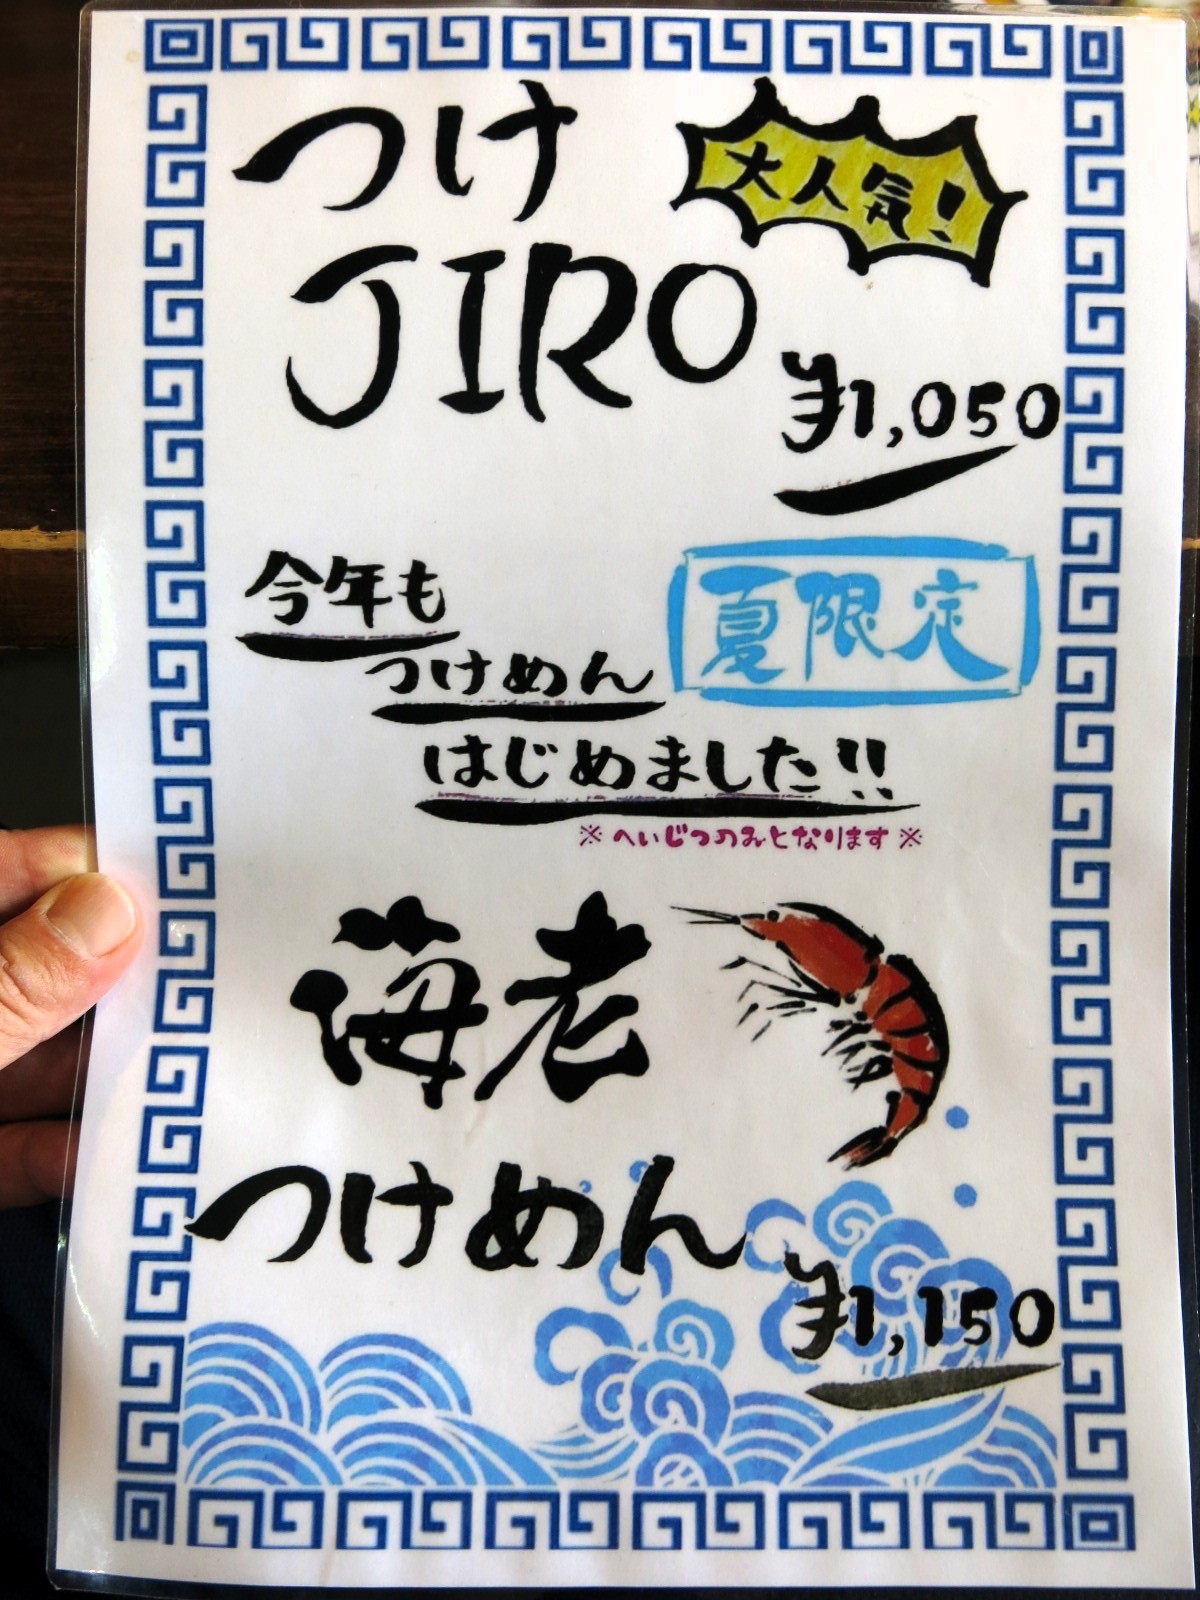 つけ
大人気!
JIRO
¥1,050
今年も
つけめん
はじめました!!
夏限定
※へいじつのみとなります※
海老
つけめん
¥1,150